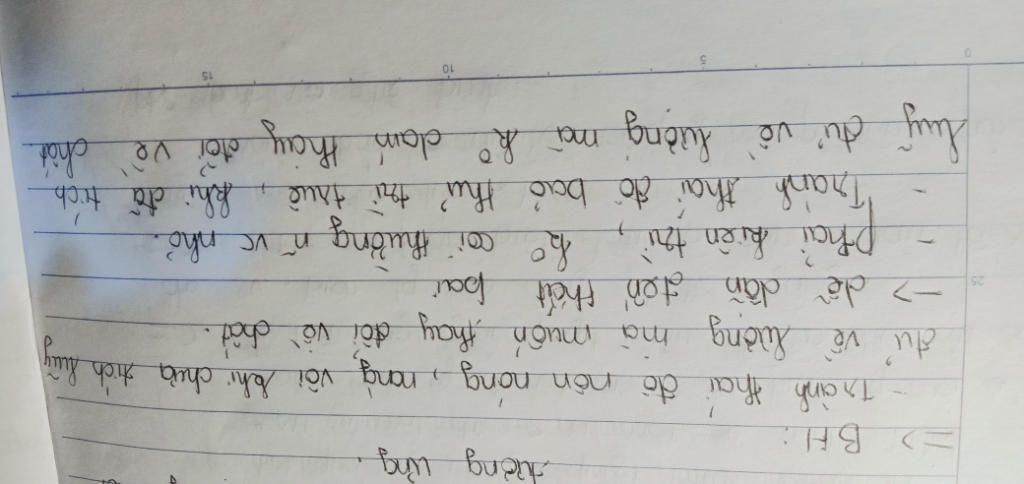 tương ứng.
=> BH:
- Tránh thái độ nôn nóng, nóng vội khi chưa tích luỹ
đủ về lượng mà muốn thay đổi về chất.
25 -> dễ dẫn đến thất bại
- Phải kiên trì, k° coi thường n~ vc nhỏ.
- Tránh thái độ bảo thủ trì truệ, khi đã tích
luỹ đủ về lượng mà k° dám thay đổi về chất.
0 5 10 15